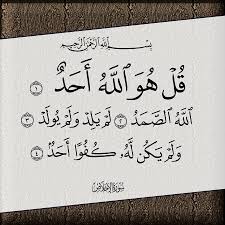 بِسْمِ ٱللَّهِ ٱلرَّحْمَٰنِ ٱلرَّحِيمِ
قُلْ هُوَ ٱللَّهُ أَحَدٌ ١
ٱللَّهُ ٱلصَّمَدُ ٢ لَمْ يَلِدْ وَلَمْ يُولَدْ ٣
وَلَمْ يَكُن لَّهُۥ كُفُوًا أَحَدٌۢ ٤
سُورَةُ الإِخْلَاصِ